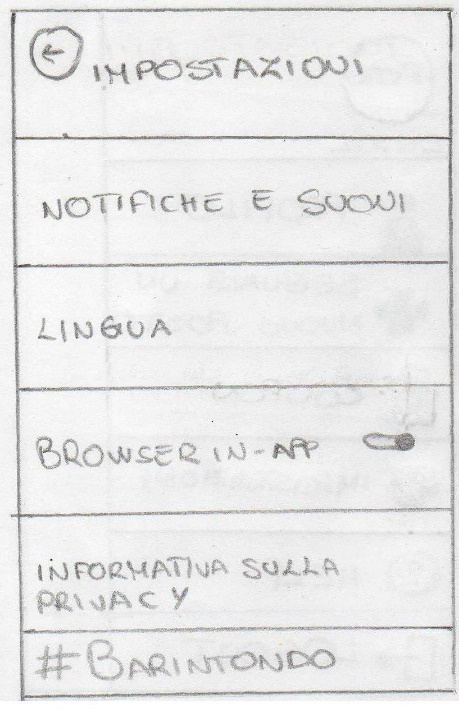 IMPOSTAZIONI
NOTIFICHE E SUONI
LINGUA
BROWSER IN-APP
INFORMATIVA SULLA
PRIVACY
#BARINTONDO